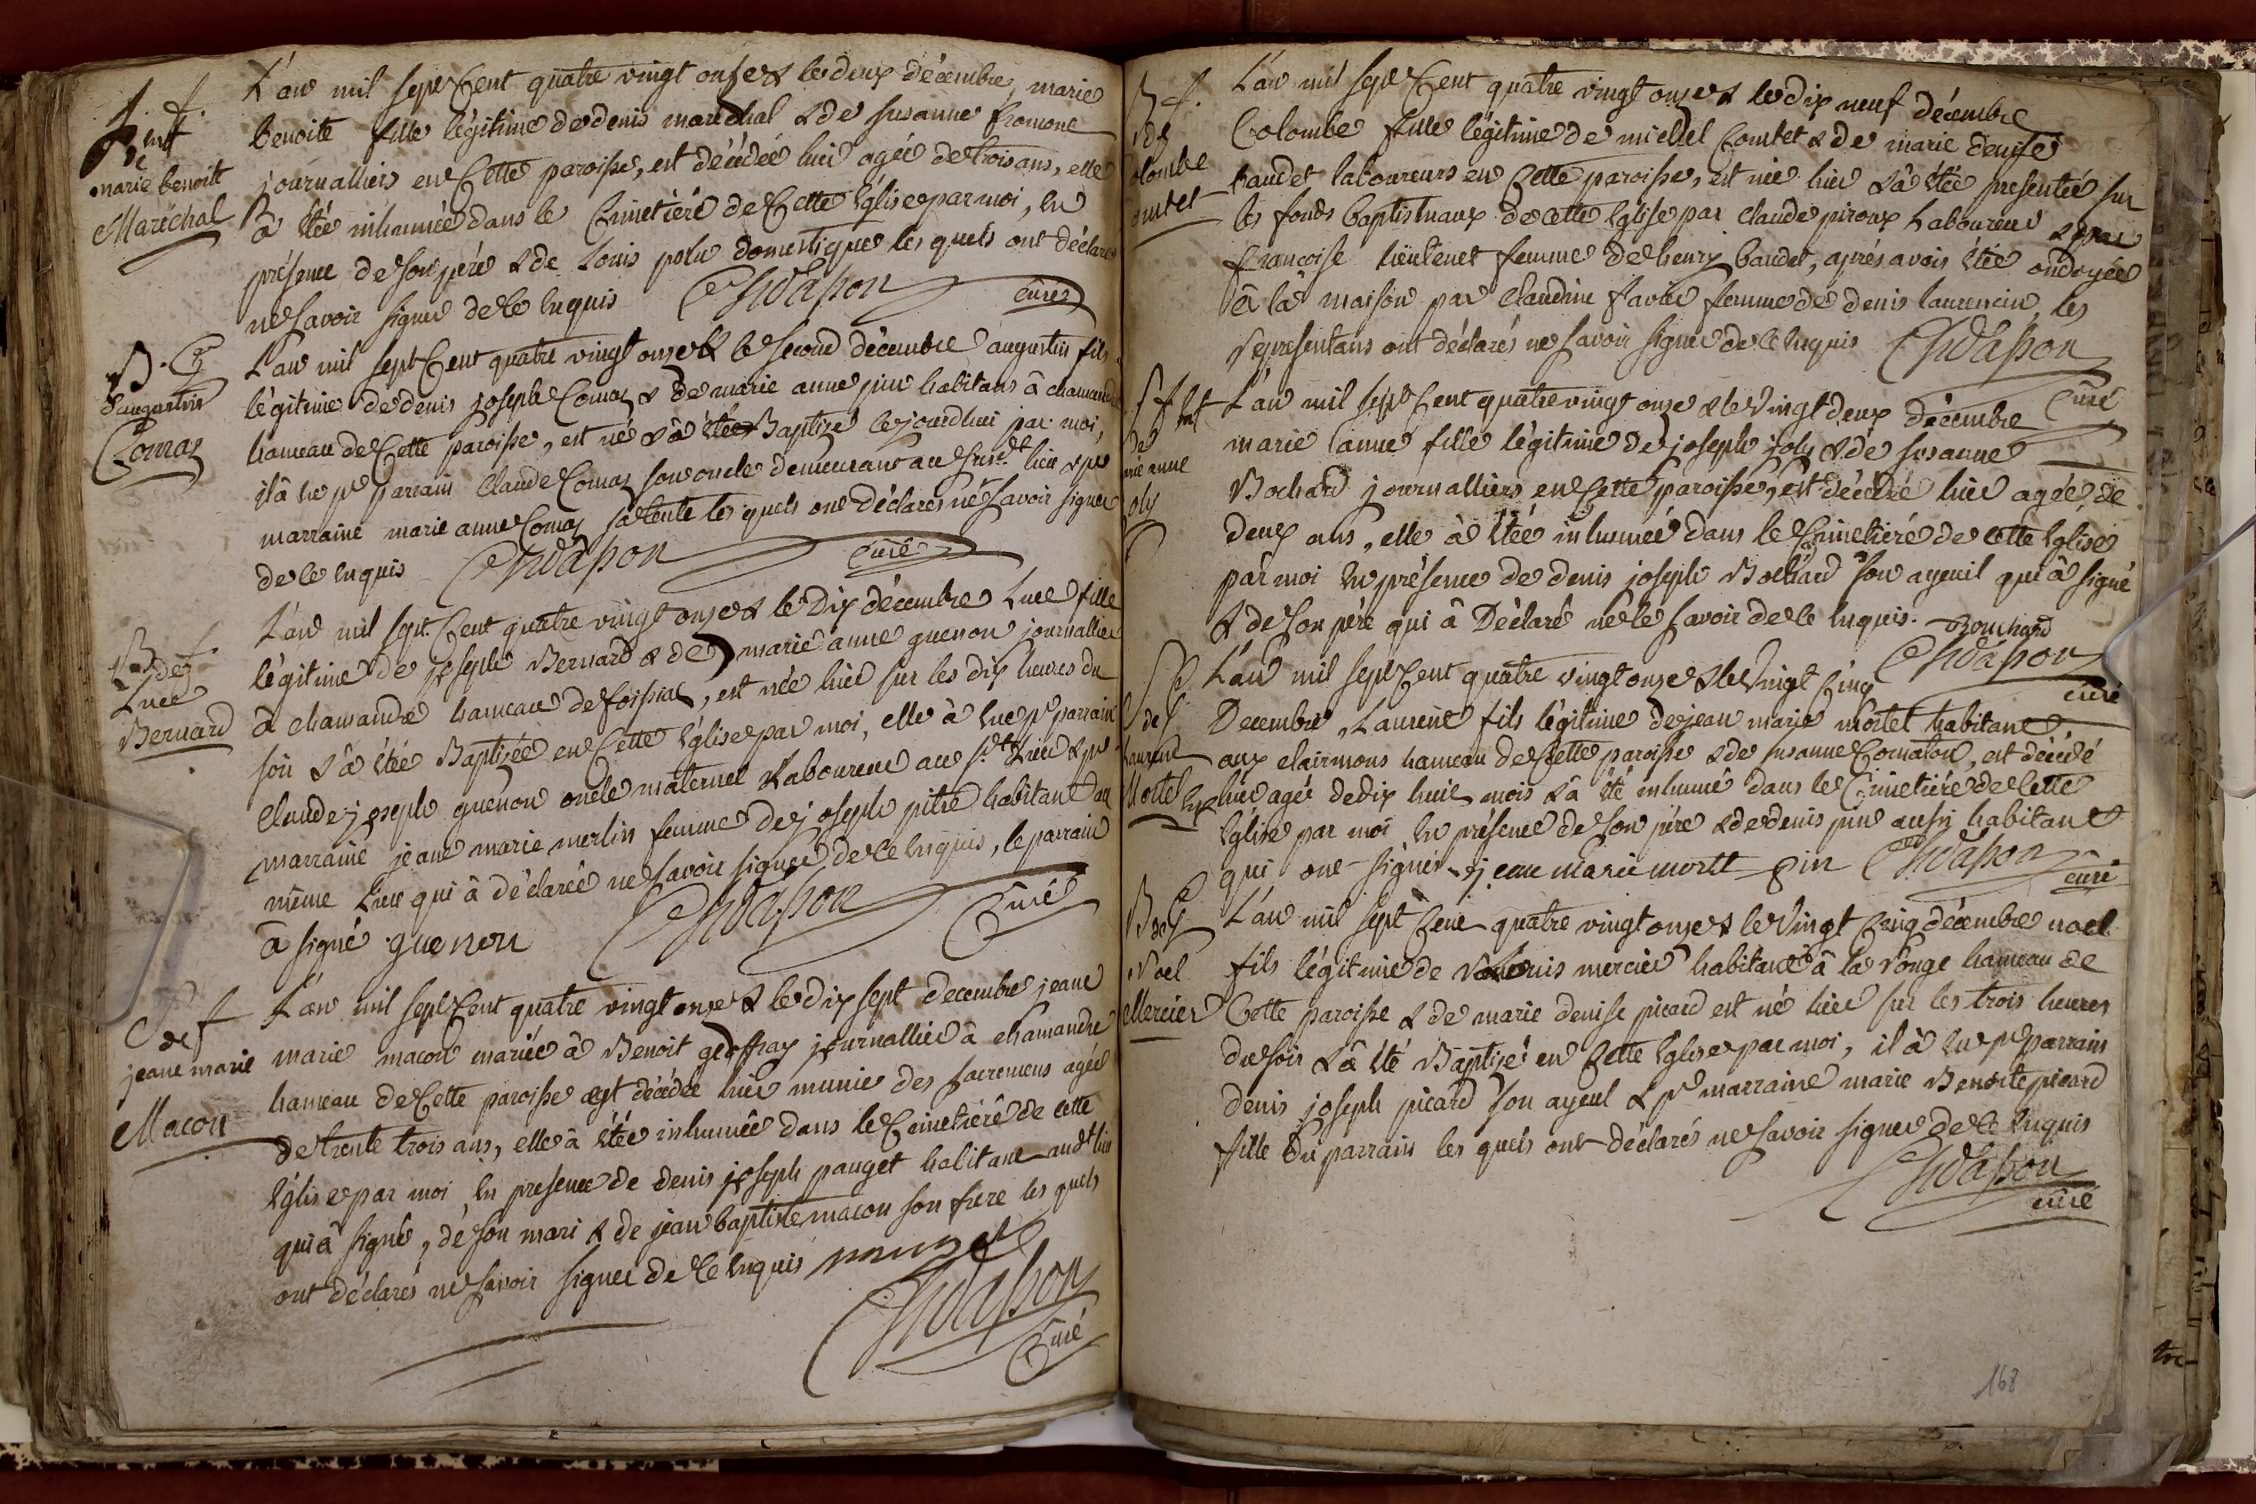 S. f.
enf
de
marie benoite
Maréchal
L'an mil sept Cent quatre vingt onze & le deux décembre, marie
benoite fille légitime de denis maréchal & de susanne fromont
journalliers en Cette paroisse, est décédée hier agée de trois ans, elle
à étée inhumée dans le Cimetière de Cette Eglise par moi, en
présence de son père & de Louis domestique les quels ont déclaré
ne savoir signer de ce enquis Chdasson curé
B. G
d'augustin
Comas
L'an mil sept Cent quatre vingt onze & le second décembre augustin fils
légitime de denis joseph Comas & de marie anne pin habitans à chamandré
hameau de Cette paroisse, est né & à été Baptizé ce jourdhui par moi,
il à eu pr parrain Claude Comas son oncle demeurant au susd.t lieu & pr
marraine marie anne Comas sa tente les quels ont déclarés ne savoir signer
de ce enquis Chdasson curé
B. f.
de
Luce
Bernard
L'an mil sept Cent quatre vingt onze & le Dix décembre Luce fille
légitime de joseph Bernard & de marie anne guenon journallier
à chamandré hameau de foissiat, est née hier sur les dix heures du
soir & à étée Baptizée en Cette Eglise par moi, elle à eu pr parrain
Claude joseph guenon oncle maternel Laboureur au s.dt Lieu & pr
marraine jeane marie merlin femme de joseph pitre habitant au
même Lieu qui à déclarée ne savoir signer de ce enquis, le parrain
à signé guenon Chdasson Curé
S
de f
jeane marie
Macon
L'an mil sept Cent quatre vingt onze & le dix sept decembre jeane
marie macon mariée à Benoit geoffray journallier à chamandré
hameau de Cette paroisse est décédée hier munie des sacremens agée
de trente trois ans, elle à étée inhumée dans le Cimetière de cette
Eglise par moi en presence de denis joseph pauget habitant aud.t lieu
qui à signé, de son mari & de jean baptiste macon son frere les quels
ont déclarés ne savoir signer de ce enquis pauget
Chdasson
Curé
B f.
de
Colombe
Comtet
L'an mil sept Cent quatre vingt onze & le dix neuf décembre
Colombe fille légitime de michel Comtet & de marie denise
baudet laboureurs en Cette paroisse, est née hier & à étée presentée sur
les fonds baptismaux de cette Eglise par Claude piroux Laboureur & par
françoise lieutenet femme de henry baudet, après avoir étée ondoyée
à la maison par Claudine favier femme de denis laurencin, les
representans ont déclarés ne savoir signer de ce enquis Chdasson
Curé
S f enf
de
mie anne
joly
L'an mil sept Cent quatre vingt onze & le Vingt deux décembre
marie anne fille légitime de joseph joly & de susanne
Bochard journalliers en Cette paroisse, est décédée hier agée de
deux ans, elle à étée inhumée dans le Cimetière de cette Eglise
par moi en présence de denis joseph Bochard son ayeuil qui à signé
& de son père qui à Déclaré ne le savoir de ce enquis. Bouchard
Chdasson
curé
S G
de
Laurent
Mortel enf
L'an mil sept Cent quatre vingt onze & le Vingt Cinq
Decembre, Laurent fils légitime de jean marie mortel habitant
aux clairmons hameau de Cette paroisse & de susanne Cornaton, est décédé
hier agé de dix huit mois & à été inhumé dans le Cimetière de Cette
Eglise par moi en présence de son père & de denis pin aussi habitant
qui ont signés jean marie mortt pin Chdasson curé
B G
de
Noel
Mercier
L'an mil sept Cent quatre vingt onze & le Vingt Cinq décembre noel
fils légitime de mercier habitant à la Ronge hameau de
Cette paroisse & de marie denise picard est né hier sur les trois heures
du soir & à été Baptizé en Cette Eglise par moi, il à eu pr parrain
denis joseph picard son ayeul & pr marraine marie Benoite picard
fille du parrain les quels ont déclarés ne savoir signer de ce enquis
Chdasson
curé
168